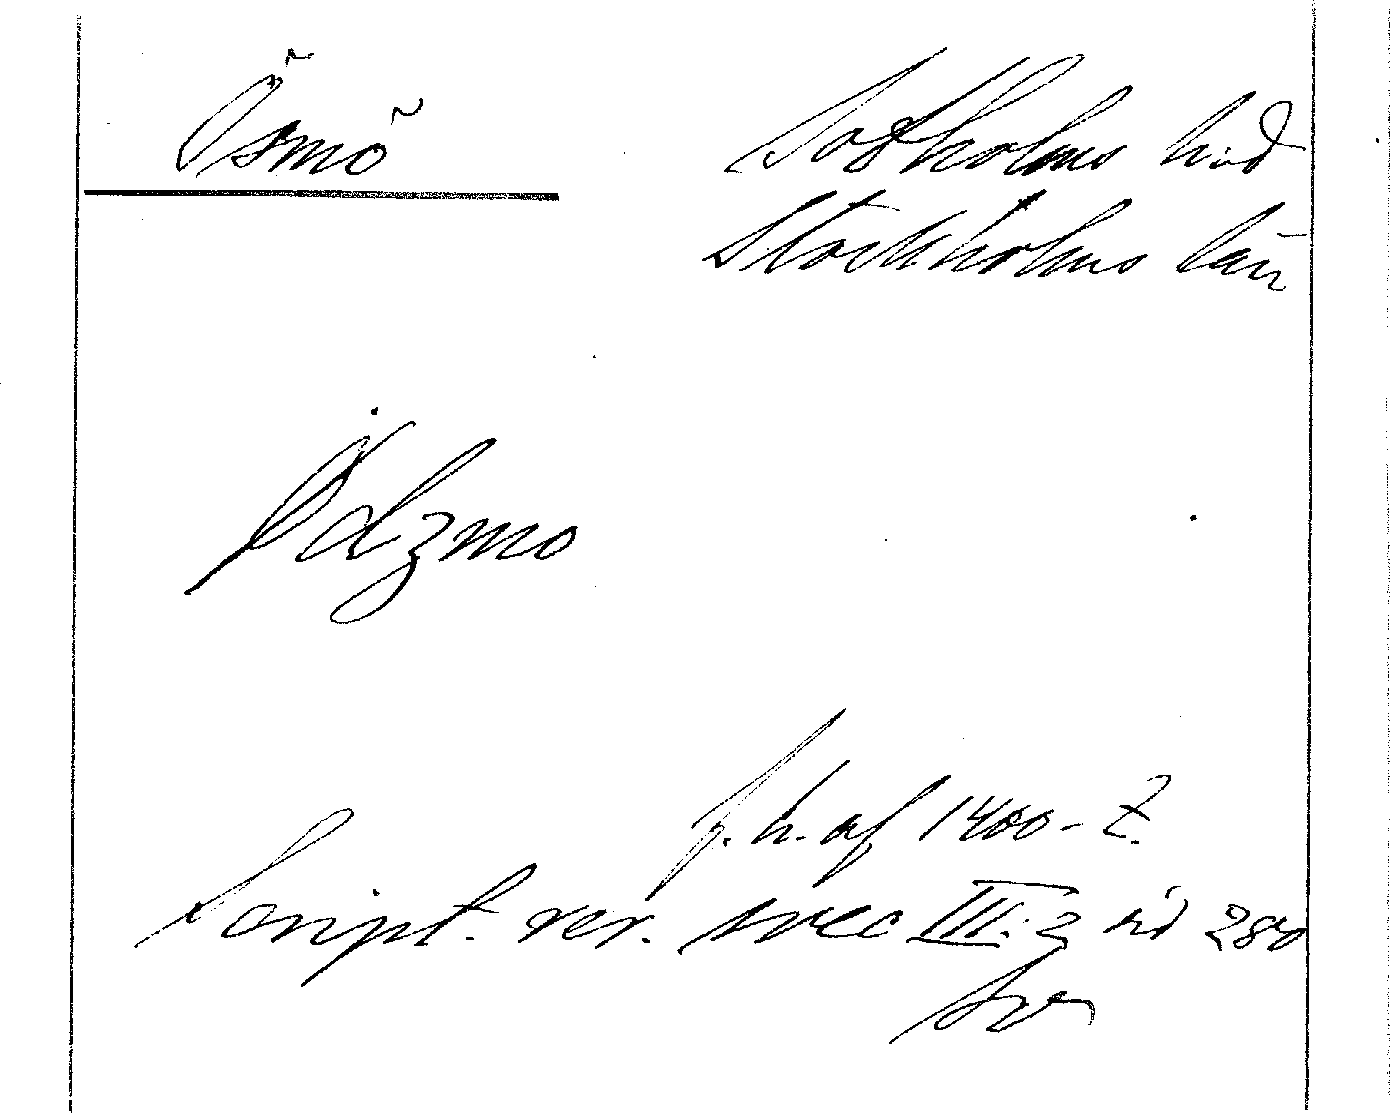 Ösmo Sotholms hd
Stockholms län
Ödzmo
f. h. af 1400-t.
Script. rer. svec III:2 sid 280